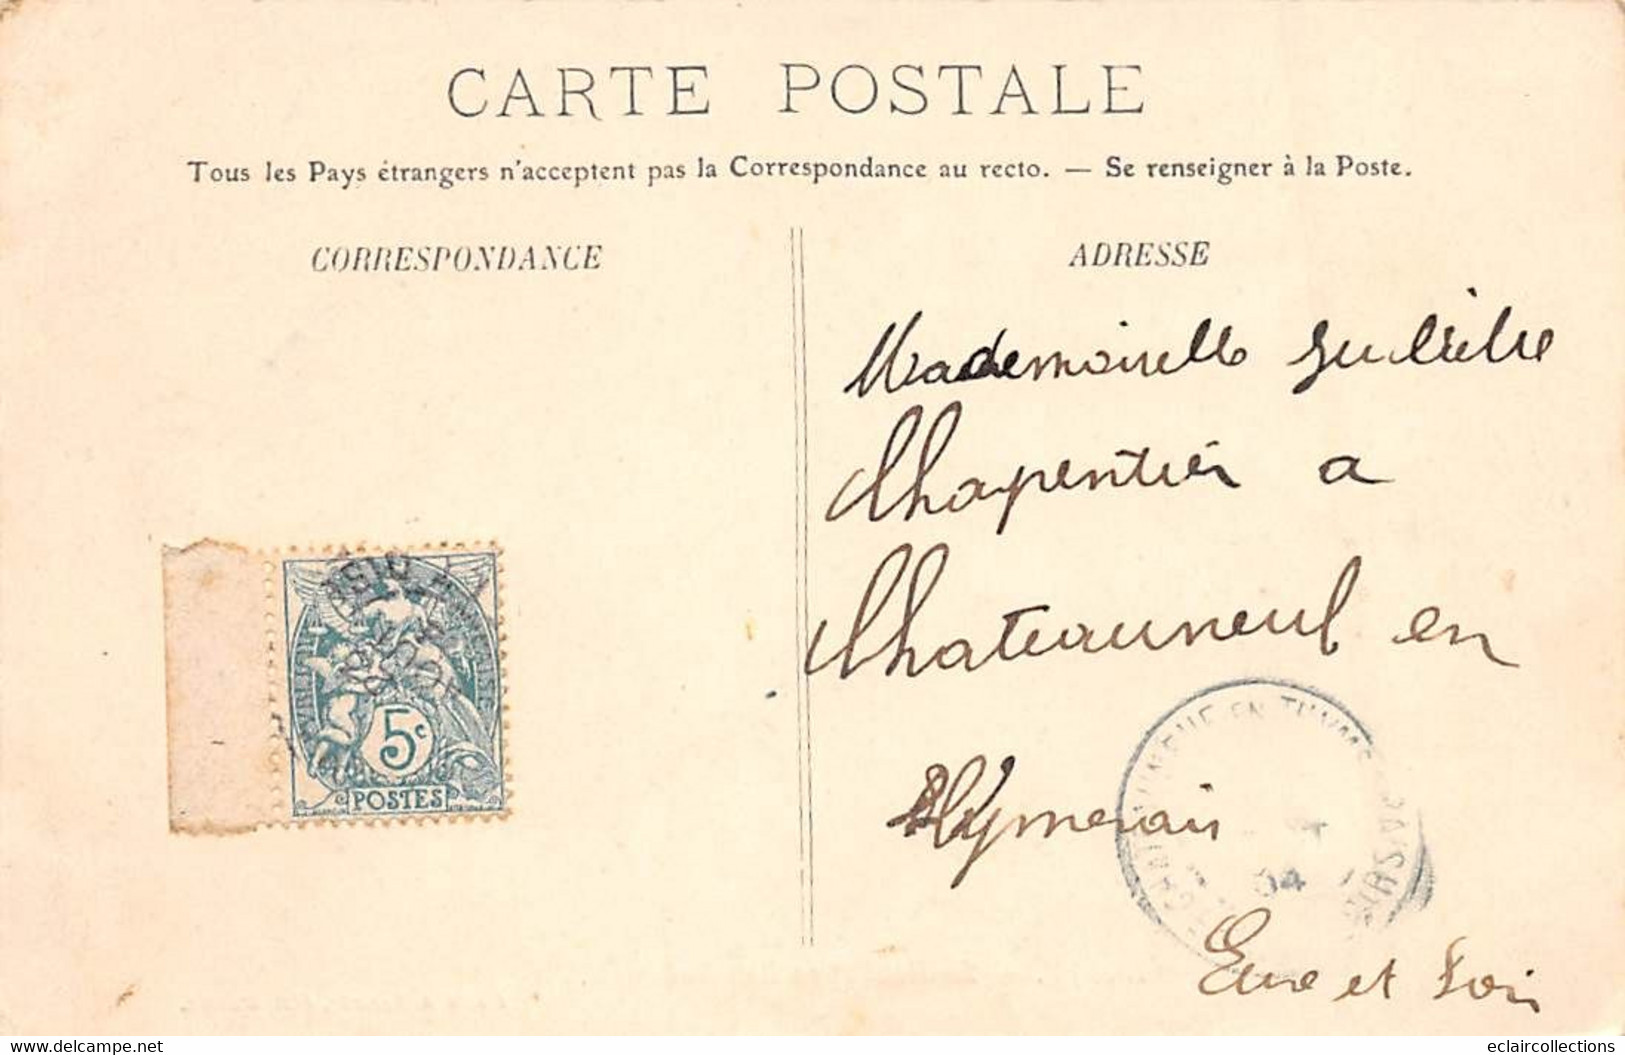 CARTE POSTALE
Tous les Pays étrangers n'acceptent pas la Correspondance au recto. — Se renseigner à la Poste.
CORRESPONDANCE
ADRESSE
Mademoiselle
Chapentier a
Chateauneuf en
Thymerais
Eure et Loir
5c
POSTES
EN THYMERAIS
04
www.delcampe.net
eclaircollections